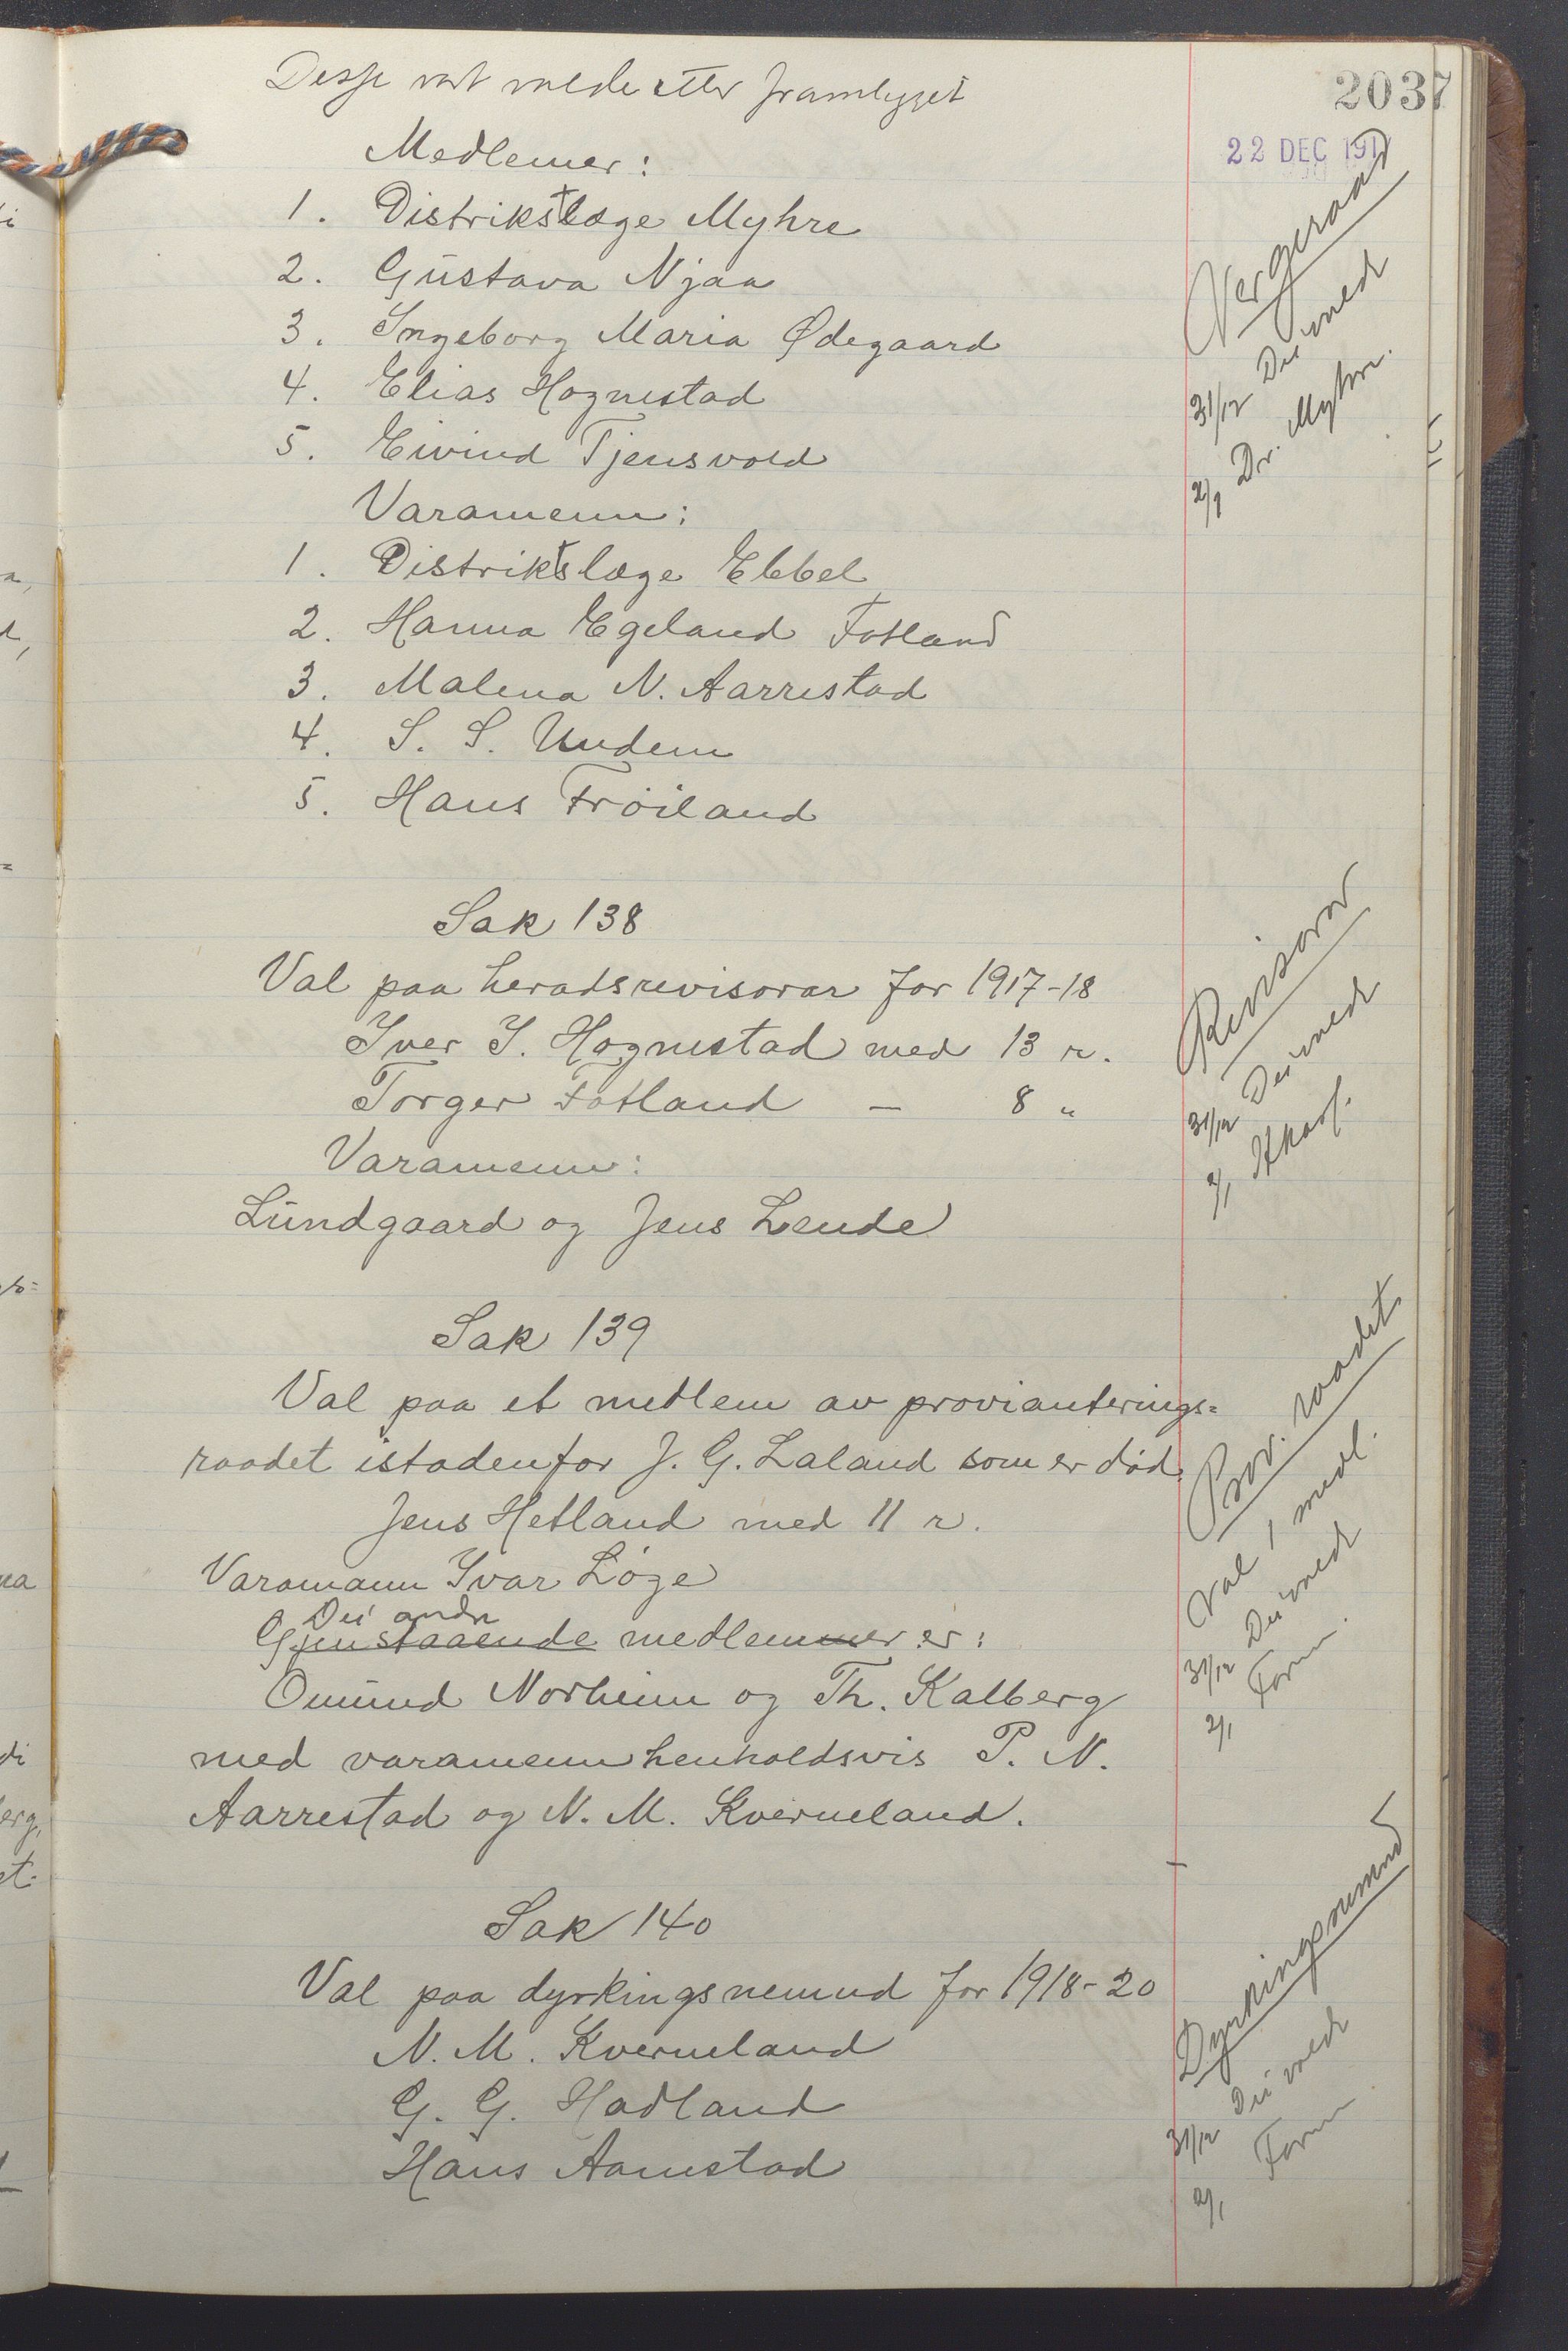 2037
22 DEC 191
Desse vart valde etter framlegget
Medlemer:
1. Distriktslæge Myhre
2. Gustava Njaa
3. Ingeborg Maria Ødegaard
4. Elias Hognestad
5. Eivind Tjensvold
Varamenn:
1. Distriktslæge Ebbel
2. Hanna Egeland Fotland
3. Malena N. Aarrestad
4. S. S. Undem
5. Hans Frøiland
Vergeraad
31/12 Dei valde
2/1 Dr. Myhre.
Sak 138
Val paa heradsrevisorar for 1917-18
Iver I. Hognestad med 13 r.
Torger Fotland — 8 "
Varamenn:
Lundgaard og Jens Lende
Revisorar
31/12 Dei valde
2/1
Sak 139
Val paa et medlem av provianterings=
raadet istadenfor J. G. Laland som er død.
Jens Hetland med 11 r.
Varamann Ivar Løge
Dei andre
Gjenstaaende medlemmer er:
Omund Norheim og Th. Kalberg
med varamenn henholdsvis P. N.
Aarrestad og N. M. Kverneland.
Prov. raadet
Val 1 medl.
31/12 Dei valde
2/1 Form.
Sak 140
Val paa dyrkingsnemnd for 1918-20
N. M. Kverneland
G. G. Hadland
Hans Aamestad
Dyrkingsnemnd
31/12 Dei valde
2/1 Form